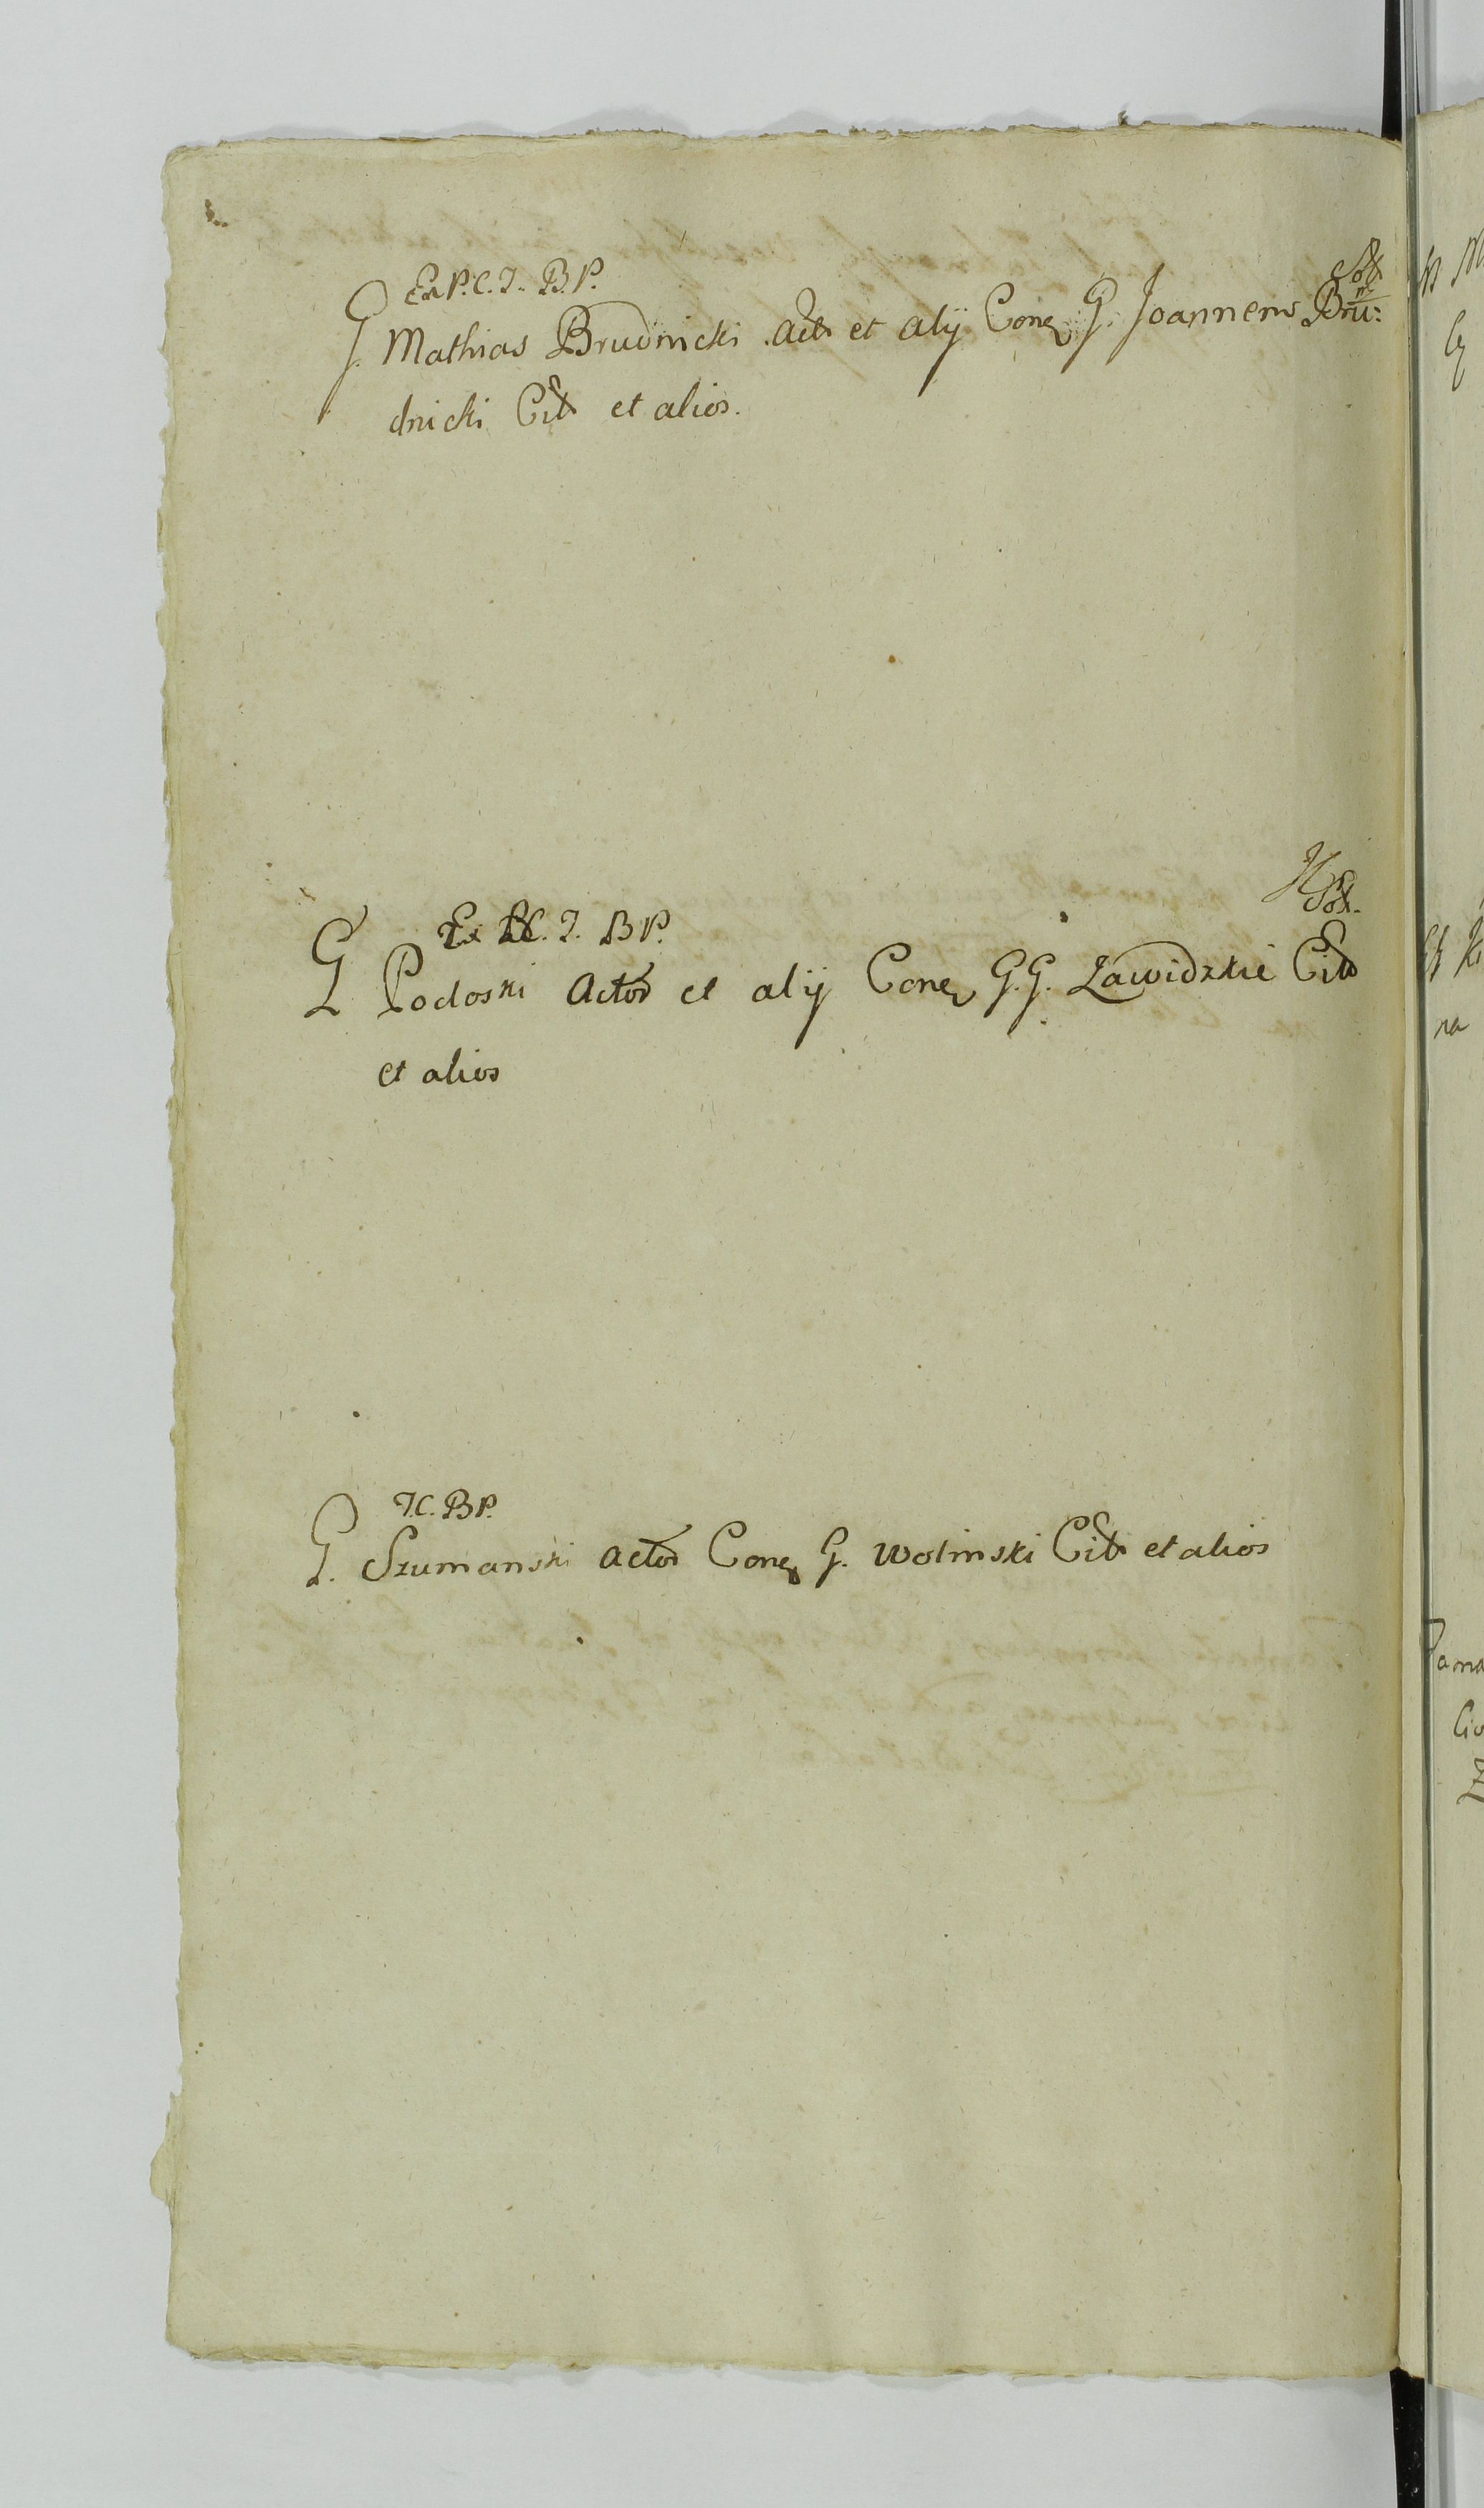 Ex P. C. J. B. P.
G. Mathias Brudnicki Act et alij Conq G. Joannem Bru:
dnicki Cit et alios.
Ex P.C. J. B P.
G Podoski Actor et alij Conq G. G. Zawidzkie Cit
et alios
J.C. B P.
G. Szumanski Actor Conq G. Wolinski Cit et alios